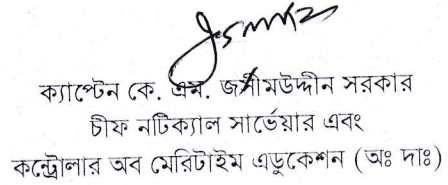 ক্যাপ্টেন কে. এম. জসীমউদ্দীন সরকার
চীফ নটিক্যাল সার্ভেয়ার এবং
কন্ট্রোলার অব মেরিটাইম এডুকেশন (অঃ দাঃ)